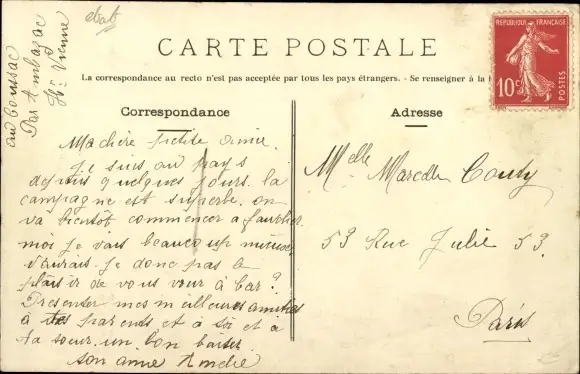 CARTE POSTALE
La correspondance au recto n'est pas acceptée par tous les pays étrangers. - Se renseigner à la
REPUBLIQUE FRANÇAISE
10c
POSTES
Correspondance
Adresse
Par Ambazac
Hte Vienne
Ma chère Petite Amie.
Je suis au pays
depuis quelques jours. la
campagne est superbe. on
va bientôt commencer a faucher
moi je vais beaucoup mieux
aurais-je donc pas le
plaisir de vous voir à
Presenter mes meilleures amitiés
à tes parents et à toi et à
ta soeur un bon baiser
son amie André
Melle Marcelle Couty
53 Rue Julie 53.
Paris